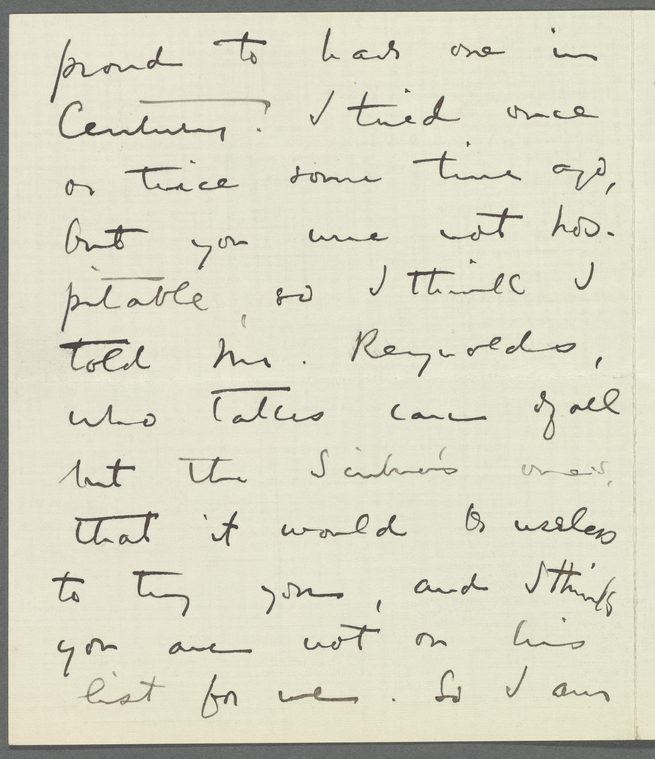 proud to have one in
Century! I tried once
or twice some time ago,
but you were not hos-
pitable, so I think I
told Mr. Reynolds,
who takes care of all
but the Scribner's ones,
that it would be useless
to try you, and I think
you are not on his
list for me. So I am